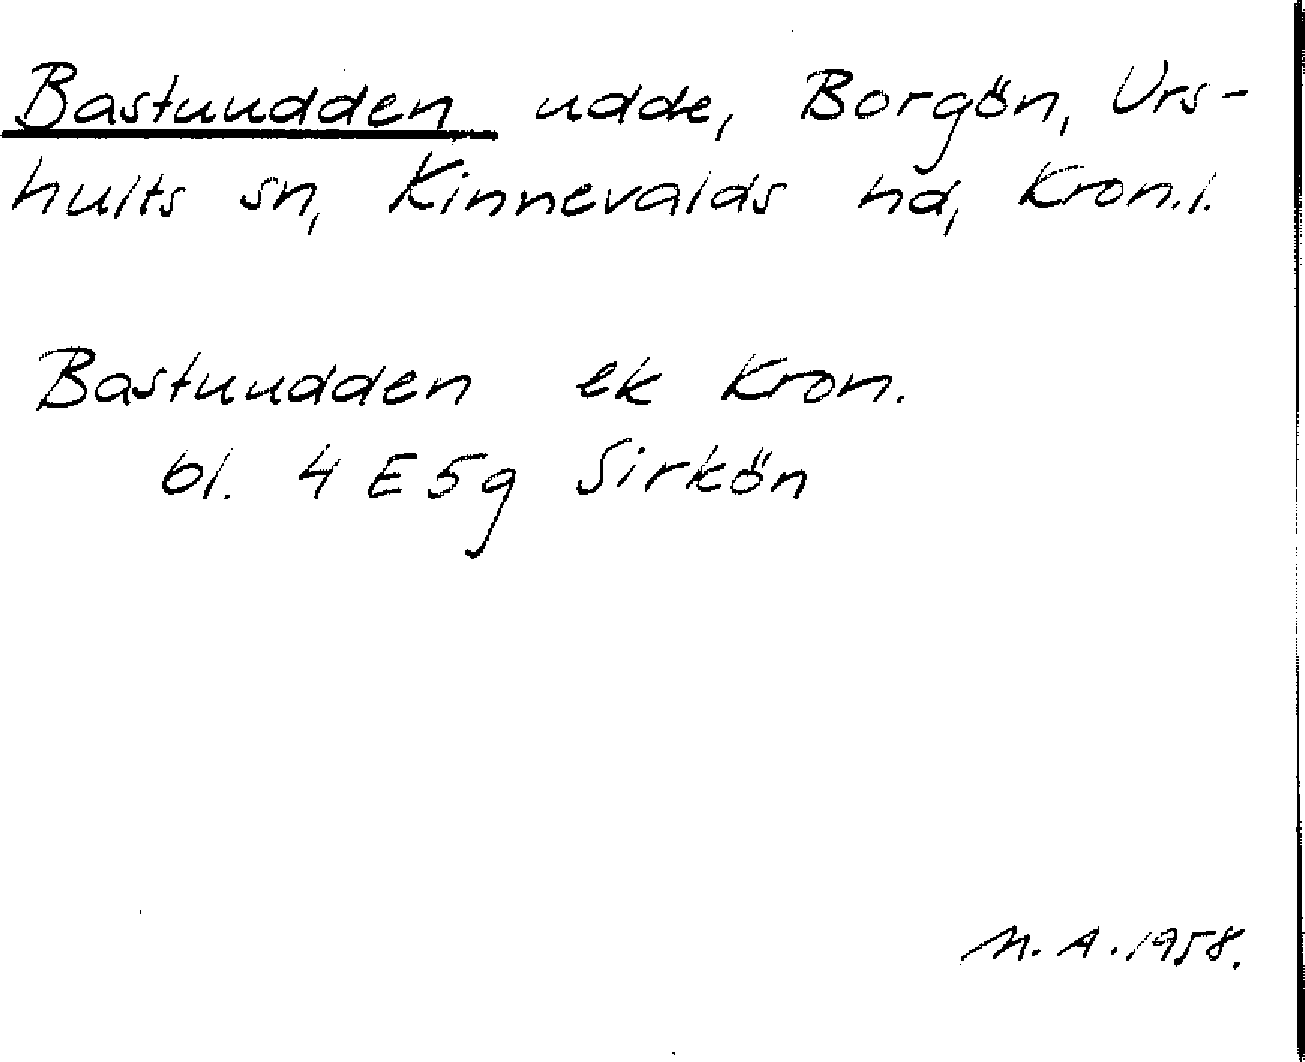 Bastuudden udde, Borgön, Urs-
hults sn, Kinnevalds hd, Kron.l.
Bastuudden ek Kron.
bl. 4 E 5g Sirkön
M.A. 1958.